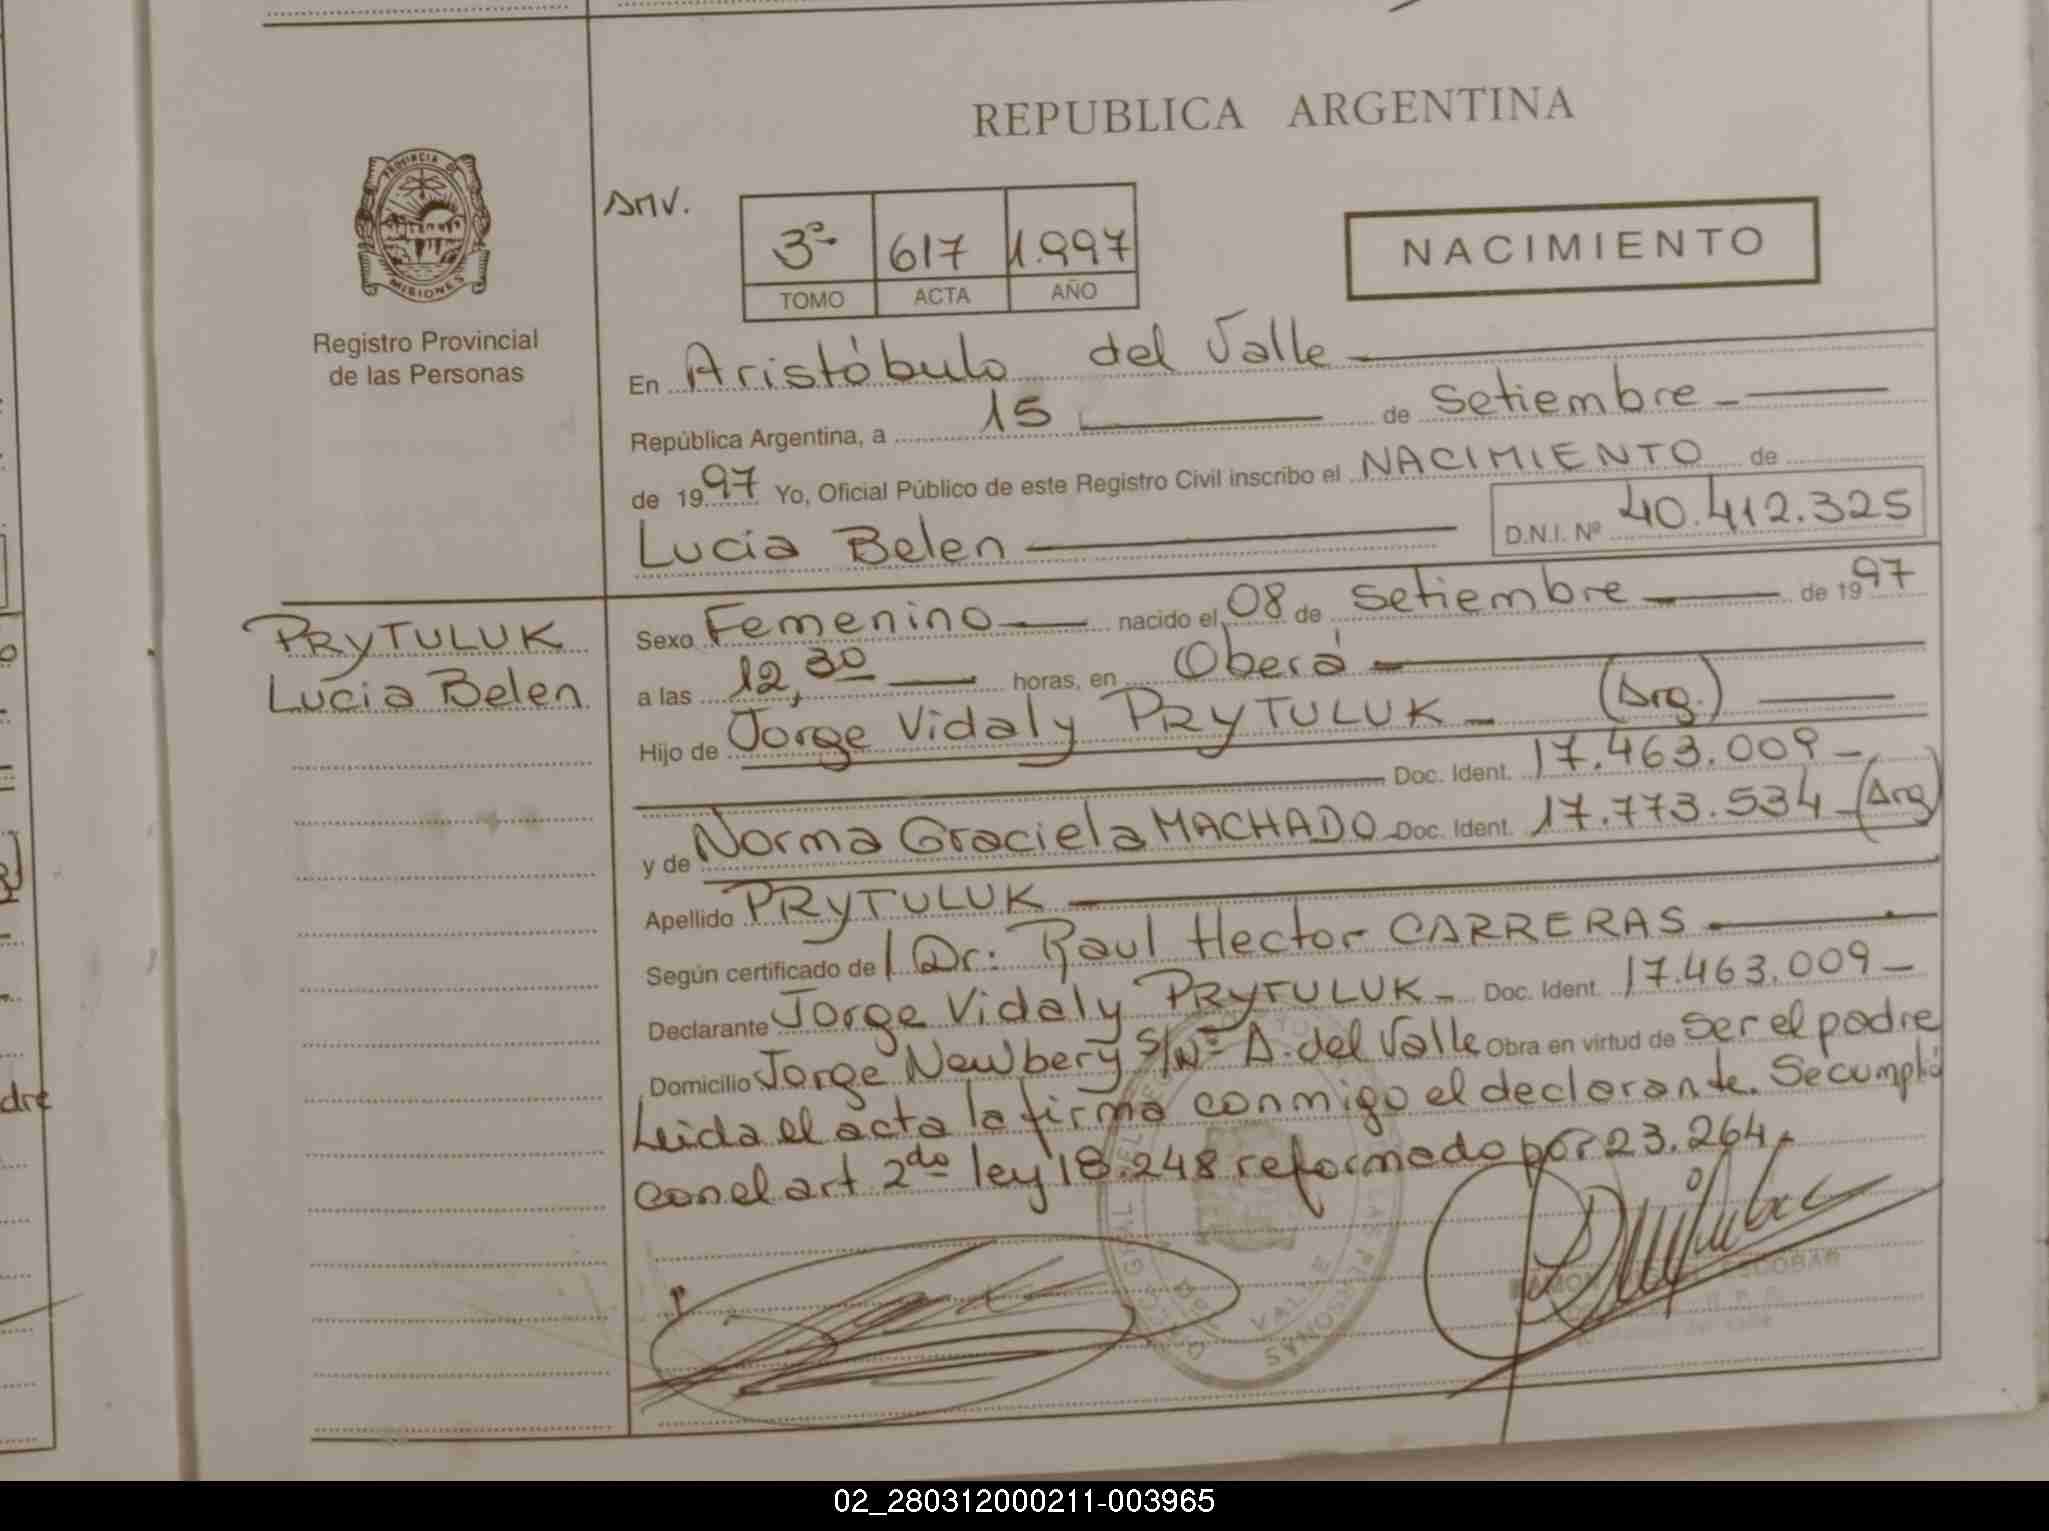 REPUBLICA ARGENTINA
PROVINCIA DE
MISIONES
Registro Provincial
de las Personas
AMV.
3º 617 1.997
TOMO ACTA AÑO
NACIMIENTO
En Aristóbulo del Valle
República Argentina, a 15 de Setiembre
de 1997 Yo, Oficial Público de este Registro Civil inscribo el NACIMIENTO de
Lucia Belen D.N.I. Nº 40.412.325
PRYTULUK
Lucia Belen
Sexo Femenino nacido el 08 de Setiembre de 1997
a las 12,30 horas, en Oberá
Hijo de Jorge Vidaly PRYTULUK (Arg.)
Doc. Ident. 17.463.009
y de Norma Graciela MACHADO Doc. Ident. 17.773.534 (Arg)
Apellido PRYTULUK
Según certificado de Dr: Raul Hector CARRERAS
Declarante Jorge Vidaly PRYTULUK Doc. Ident. 17.463.009
Domicilio Jorge Newbery S/Nº A. del Valle Obra en virtud de Ser el padre
Leida el acta la firma conmigo el declarante. Se cumplió
con el art 2do ley 18.248 reformado por 23.264.
VALLE
PERSONAS
ESCOBAR
dre
02_280312000211-003965